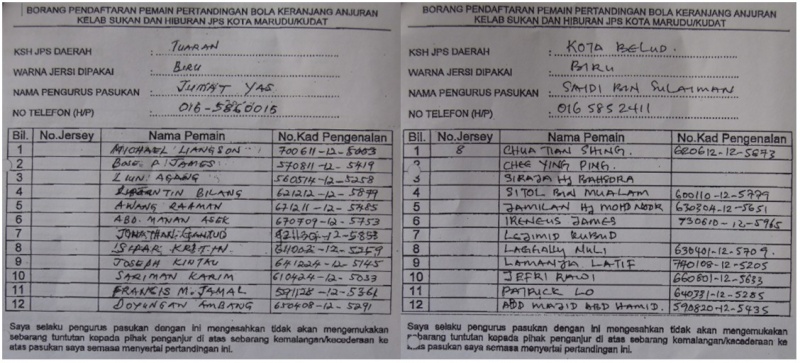 BORANG PENDAFTARAN PEMAIN PERTANDINGAN BOLA KERANJANG ANJURAN
KELAB SUKAN DAN HIBURAN JPS KOTA MARUDU/KUDAT
KSH JPS DAERAH : TUARAN
WARNA JERSI DIPAKAI : BIRU
NAMA PENGURUS PASUKAN : JUMAT YAS
NO TELEFON (H/P) : 016-5860015
Bil. No.Jersey Nama Pemain No.Kad Pengenalan
1 MICHAEL LIANGSON 700611-12-5003
2 P. JAMES 570811-12-5419
3 AGANG 560514-12-5258
4 BILANG 621212-12-5899
5 AWANG RAAMAN 671211-12-5485
6 ABD. MANAN 670709-12-5753
7
8
9 JOSEPH KINTAU 641224-12-5145
10 SARIMAN KARIM 610424-12-5033
11 FRANCIS M. JAMAL 591128-12-5361
12 DOYUNGAN AMBANG 650408-12-5291
Saya selaku pengurus pasukan dengan ini mengesahkan tidak akan mengemukakan
sebarang tuntutan kepada pihak penganjur di atas sebarang kemalangan/kecederaan ke
atas pasukan saya semasa menyertai pertandingan ini.
BORANG PENDAFTARAN PEMAIN PERTANDINGAN BOLA KERANJANG ANJURAN
KELAB SUKAN DAN HIBURAN JPS KOTA MARUDU/KUDAT
KSH JPS DAERAH : KOTA BELUD.
WARNA JERSI DIPAKAI : BIRU
NAMA PENGURUS PASUKAN : SAIDI BIN SULAIMAN
NO TELEFON (H/P) : 016 585 2411
Bil. No.Jersey Nama Pemain No.Kad Pengenalan
1 8 CHUA TIAN SHING. 620612-12-5673
2 CHEE YING PING.
3 SIRAJA HJ BAHSORA
4 SITOL BIN MUALAM 600110-12-5779
5 JAMILAN HJ MOHD NOOR 630804-12-5651
6 IRENEUS JAMES 730610-12-5965
7 LEJIMID
8 LAGGALLY NULI 630401-12-5709.
9 LAMANJA LATIF 740108-12-5205
10 JEFRI RAWI 660801-12-5633
11 PATRICK LO 640331-12-5285
12 ABD MAJID ABD HAMID. 590820-12-5435
Saya selaku pengurus pasukan dengan ini mengesahkan tidak akan mengemukakan
sebarang tuntutan kepada pihak penganjur di atas sebarang kemalangan/kecederaan ke
atas pasukan saya semasa menyertai pertandingan ini.